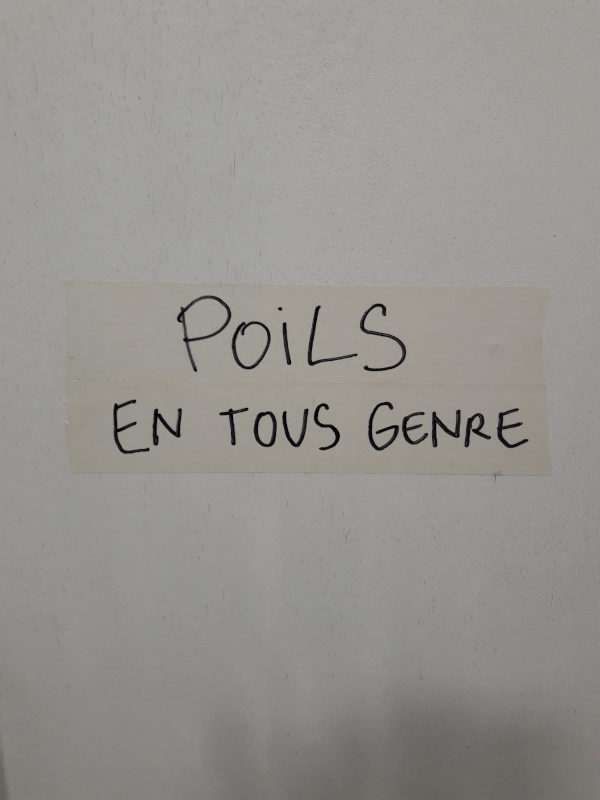 POiLS
EN TOUS GENRE